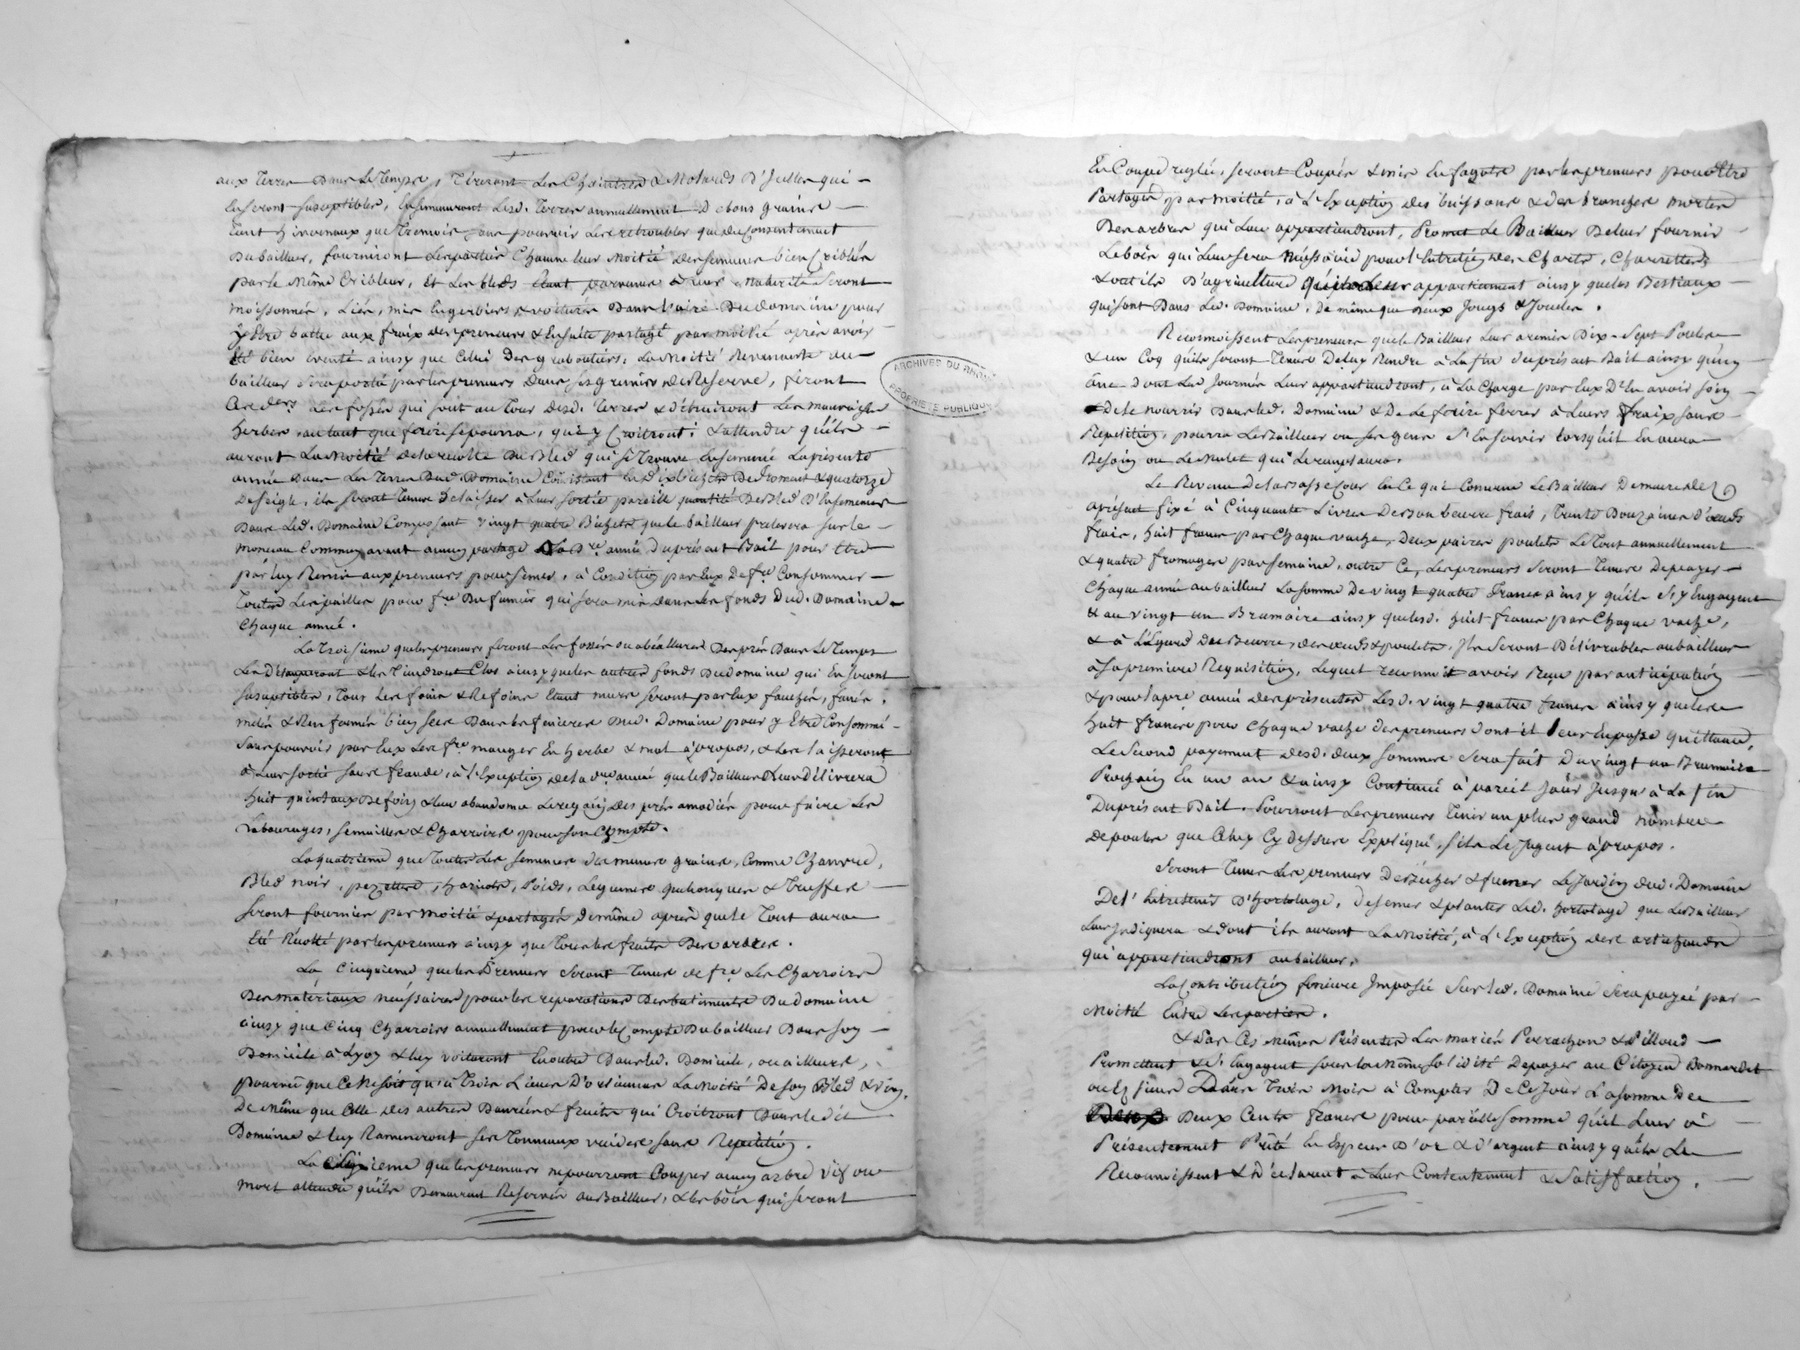 aux terres Dans Le Temps, Tireront Les Chaintres & Molards D'Icelles qui
En seront susceptibles, Ensemenceront Lesd. Terres annuellement de bons grains
tant hivernaux que Tremois, sans pouvoir Les retroubler que du Consentement
Du bailleur, fourniront Les parties Chacune leur Moitié Des semences bien Criblés
par le Même Cribleur, Et Les bleds Etant parvenus à Leur Maturité seront
moissonnés, Liés, mis En gerbiers & voiturés Dans L'aire Du domaine pour
y Etre battu aux fraix des preneurs & Ensuite partagé par moitié après avoir
Eté bien Eventé ainsy que Celui Des grabouliers, La Moitié Revenante au
bailleur sera porté par les preneurs Dans ses greniers de Reserve, feront
Les fossés qui sont au Tour Desd. Terres & détruiront Les mauvaises
herbes, autant que faire se pourra, qui y Croitront; & attendu qu'ils
auront La Moitié de la recolte Du Bled qui se Trouve Ensemencé La présente
année Dans Les Terres Dud. Domaine Consistant En dix bichets De froment & quatorze
De seigle, ils seront Tenus de laisser à Leur sortie pareille quantité De Bled D'Ensemencé
Dans Led. Domaine Composant vingt quatre Bichets que le bailleur prelevera sur le
monceau Commun avant aucun partage La Dre. année du présent Bail pour Etre
par luy Remis aux preneurs pour semer, à Condition par Eux De fre. Consommer
Toutes Les pailles pour fre. Du fumier qui sera mis dans les fonds Dud. Domaine
Chaque année.
La Troisieme que les preneurs feront Les fossés ou abéallures Des prés Dans Le Temps
Les & Les Tiendront Clos ainsy que les autres fonds Du domaine qui En seront
susceptibles, Tous Les foins & Refoins Etant murs seront par Eux fauchés, fanés,
mélés & Renfermés bien secs Dans les fenieres Dud. Domaine pour y Etre Consommé
sans pouvoir par Eux Les fre. manger En herbe & mal à propos, & Les laisseront
à Leur sortie sans fraude, à l'Exception de la année que le Bailleur Leur délivrera
huit quintaux De foin & Leur abandonne Le regain des prés amodiés pour faire Les
Labourages, semailles & Charrois pour son Compte.
La quatrieme que Toutes Les semences Des menus grains, Comme Chanvre,
Bled noir, pezettes, haricots, Poids, Legumes quelconques & Truffes
seront fournies par moitié & partagés de même après que le Tout aura
Eté Récolté par les preneurs ainsy que Tous les fruits Des arbres.
La Cinquieme que les Preneurs seront Tenus de fre. Les Charrois
Des materiaux necéssaires pour les réparations Des batiments Du domaine
ainsy que Cinq Charrois annuellement pour le Compte Du bailleur Dans son
Domicile à Lyon & luy voitureront En outre Dans led. Domicile, ou ailleurs,
pourvû que Ce Ne soit qu'à Trois Lieues D'ou La Moitié De son Bled & vin,
De Même que Celle Des autres Danrées & fruits qui Croitront Dans ledit
Domaine & luy Rameneront ses Tonneaux vuides sans Repétition.
La Sixieme que les preneurs ne pourront Couper aucun arbre vif ou
mort attendu qu'ils Demeurent Reservés au Bailleur, & les bois qui seront
En Coupe reglée, seront Coupés & mis En fagots par les preneurs pour Etre
Partagés par moitié, à L'Exception des buissons & des branches mortes
Des arbres qui Leur appartiendront, Promet Le Bailleur De leur fournir
Le bois qui Leur sera Néssesaire pour l'Entretien des Charts, Charrettes
& outils D'agriculture qui Leur appartiennent ainsy que les Bestiaux
qui sont Dans Led. Domaine, de même que Deux Jougs & Joucles.
Reconnoissent Les preneurs que le Bailleur Leur a remis Dix-Sept Poules
& un Coq qu'ils seront Tenus De luy Rendre à La fin du présent Bail ainsy qu'un
âne dont Les Journées Leur appartiendront, à La Charge par Eux D'En avoir soin
De le nourrir Dans led. Domaine & De Le faire ferrer à Leurs fraix sans
Repetition, pourra Le Bailleur ou ses gens s'En servir lorsqu'il En aura
Besoin ou Le Mulet qui Le remplacera.
Le Revenu De la Basse Cour En Ce qui Concerne Le Bailleur Demeure dès
aprésent fixé à Cinquante Livres De Bon beurre frais, Trente Douzaines D'œufs
frais, huit francs par Chaque vache, Deux paires poulets Le Tout annuellement
& quatre fromages par semaine, outre Ce, Les preneurs seront Tenus De payer
Chaque année au bailleur La somme De vingt quatre francs ainsy qu'ils s'y Engagent
& au vingt un Brumaire ainsy que lesd. huit francs par Chaque vache,
& à L'Egard Des Beurres, des œufs & poulets, Ils seront Délivrables au bailleur
à Sa premiere Requisition, Lequel reconnoit avoir Reçu par anticipation
& pour la pre. année des présentes Lesd. vingt quatre francs ainsy que les
huit francs pour Chaque vache des preneurs dont il Leur En passe quittance,
Le Second payement desd. deux sommes sera fait Du vingt un Brumaire
Prochain En un an & ainsy Continué à pareil jour Jusqu'à La fin
Du présent Bail. Pourront Les preneurs Tenir un plus grand nombre
De poules que Celuy Cy dessus Expliqué, s'ils Le Jugent à propos.
Seront Tenus Les preneurs De bêcher & fumer Le Jardin dud. Domaine
De l'Entretenir D'hortolage, De semer & planter Led. hortolage que Le Bailleur
Leur Indiquera & dont ils auront La Moitié, à L'Exception des artichauds
qui appartiendront au bailleur.
La Contribution fonciere Imposée Sur led. Domaine Sera payée par
Moitié Entre Les parties.
& Par Ces Mêmes Présentes Les mariés Perrachon & Pilloud
Promettent & s'Engagent sous la Même solidité De payer au Citoyen Bonnardet
ou Es siens Dans Trois Mois à Compter De Ce Jour La somme De
Deux Cents francs pour pareille somme qu'il Leur à
Présentement Prêté En Especes D'or & d'argent ainsy qu'ils Le
Reconnoissent & Déclarent à Leur Contentement & Satisfaction.
ARCHIVES DU RHÔNE
PROPRIÉTÉ PUBLIQUE